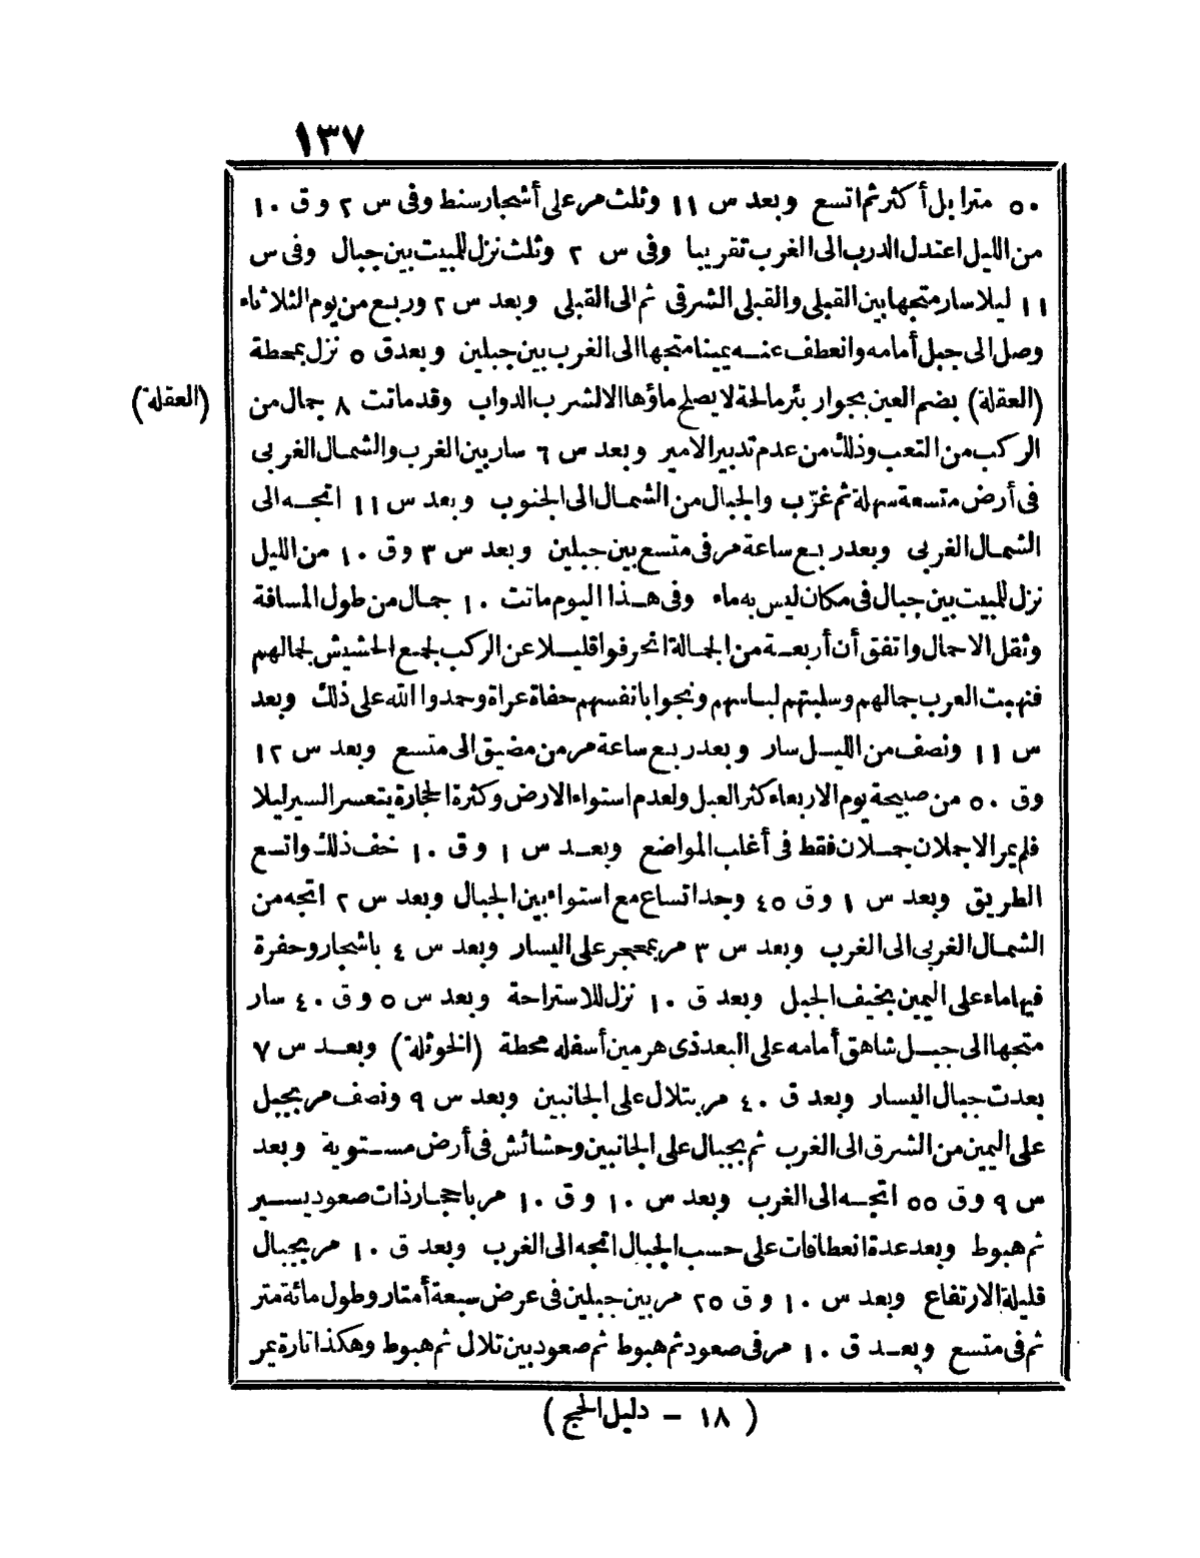 ١٣٧
٥٠ مترا بل أكثر ثم اتسع وبعد س ١١ وثلث مر على أشجار سنط وفى س ٢ و ق ١٠
من الليل اعتدل الدرب الى الغرب تقريبا وفى س ٢ وثلث نزل للمبيت بين جبال وفى س
١١ ليلا سار متجها بين القبلى والقبلى الشرقى ثم الى القبلى وبعد س ٢ وربع من يوم الثلاثاء
وصل الى جبل أمامه وانعطف عنه يمينا متجها الى الغرب بين جبلين وبعد ق ٥ نزل بمحطة
(العقلة) بضم العين بجوار بئر مالحة لا يصلح ماؤها الا لشرب الدواب وقد ماتت ٨ جمال من
(العقلة)
الركب من التعب وذلك من عدم تدبير الامير وبعد س ٦ سار بين الغرب والشمال الغربى
فى أرض متسعة سهلة ثم غرّب والجبال من الشمال الى الجنوب وبعد س ١١ اتجه الى
الشمال الغربى وبعد ربع ساعة مر فى متسع بين جبلين وبعد س ٣ وق ١٠ من الليل
نزل للمبيت بين جبال فى مكان ليس به ماء وفى هذا اليوم ماتت ١٠ جمال من طول المسافة
وثقل الاحمال واتفق أن أربعة من الجمالة انحرفوا قليلا عن الركب لجمع الحشيش لجمالهم
فنهبت العرب جمالهم وسلبتهم لباسهم ونجوا بانفسهم حفاة عراة وحمدوا الله على ذلك وبعد
س ١١ ونصف من الليل سار وبعد ربع ساعة مر من مضيق الى متسع وبعد س ١٢
وق ٥٠ من صبيحة يوم الاربعاء كثر العبل ولعدم استواء الارض وكثرة الحجارة يتعسر السير ليلا
فلم يمر الا جملان جملان فقط فى أغلب المواضع وبعد س ١ و ق ١٠ خف ذلك واتسع
الطريق وبعد س ١ و ق ٤٥ وجد اتساع مع استواء بين الجبال وبعد س ٢ اتجه من
الشمال الغربى الى الغرب وبعد س ٣ مر بمحجر على اليسار وبعد س ٤ باشجار وحفرة
فيها ماء على اليمين بخيف الجبل وبعد ق ١٠ نزل للاستراحة وبعد س ٥ و ق ٤٠ سار
متجها الى جبل شاهق أمامه على البعد ذى هرمين أسفله محطة (الخوثلة) وبعد س ٧
بعدت جبال اليسار وبعد ق ٤٠ مر بتلال على الجانبين وبعد س ٩ ونصف مر بجبل
على اليمين من الشرق الى الغرب ثم بجبال على الجانبين وحشائش فى أرض مستوية وبعد
س ٩ وق ٥٥ اتجه الى الغرب وبعد س ١٠ و ق ١٠ مر باحجار ذات صعود يسير
ثم هبوط وبعد عدة انعطافات على حسب الجبال اتجه الى الغرب وبعد ق ١٠ مر بجبال
قليلة الارتفاع وبعد س ١٠ و ق ٢٥ مر بين جبلين فى عرض سبعة أمتار وطول مائة متر
ثم فى متسع وبعد ق ١٠ مر فى صعود ثم هبوط ثم صعود بين تلال ثم هبوط وهكذا تارة يمر
(١٨ - دليل الحج)